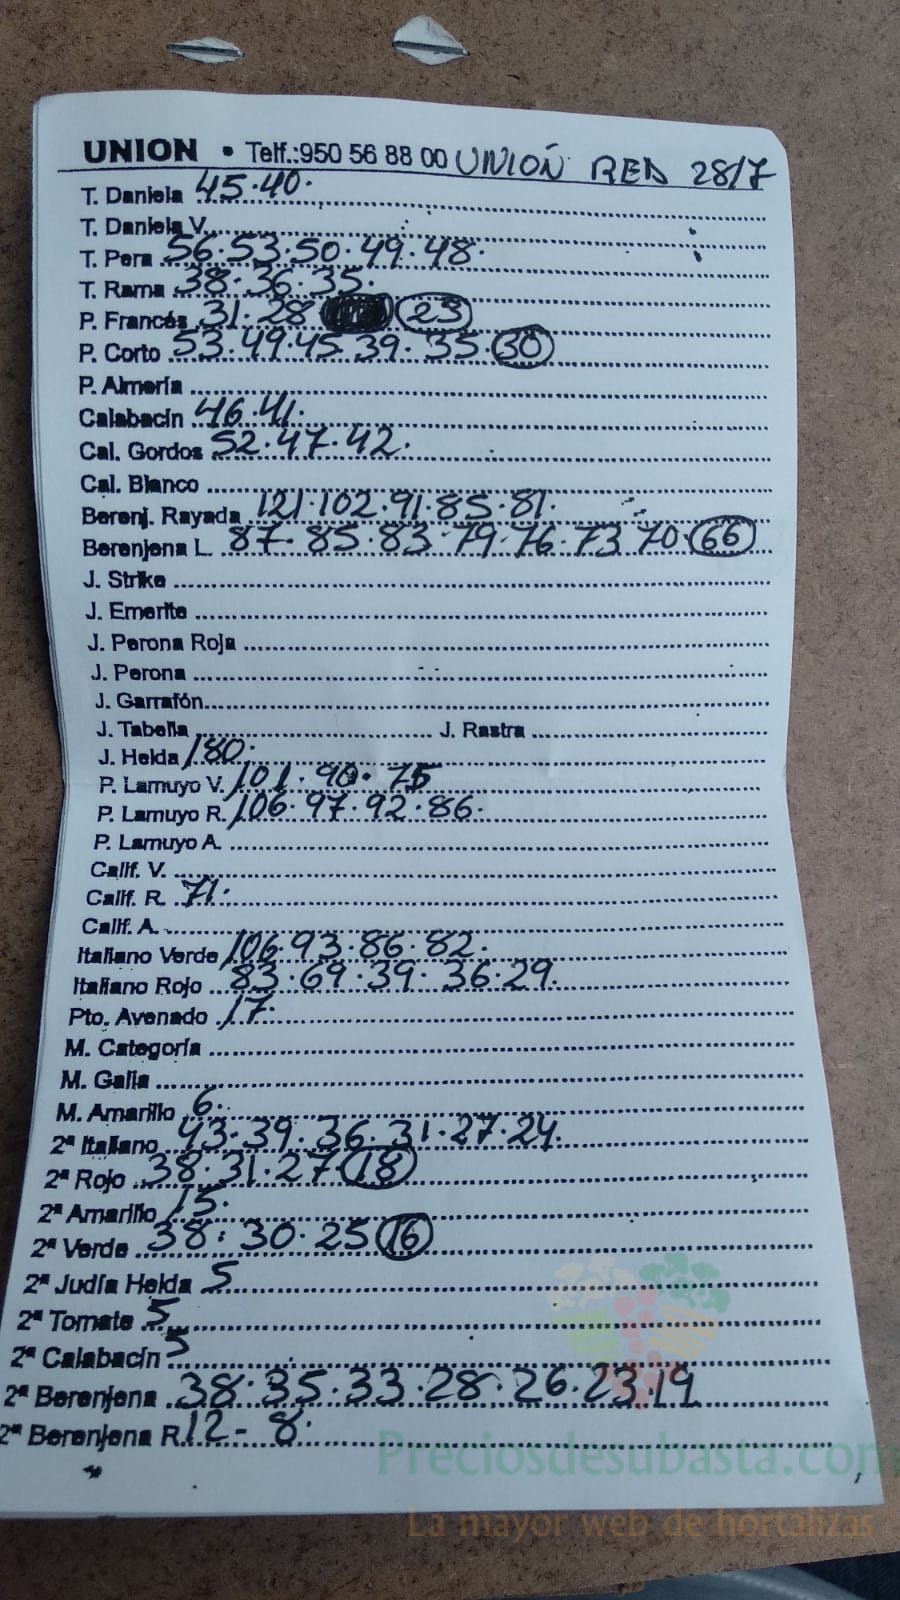 UNION • Telf.:950 56 88 00 UNIÓN RED 28/7
T. Daniela 45·40·
T. Daniela V.
T. Pera 56·53·50·49·48·
T. Rama 38·36·35·
P. Francés 31·28 23
P. Corto 53·49·45·39·35·30
P. Almería
Calabacín 46·41·
Cal. Gordos 52·47·42·
Cal. Blanco
Berenj. Rayada 121·102·91·85·81·
Berenjena L. 87·85·83·79·76·73·70·66
J. Strike
J. Emerite
J. Perona Roja
J. Perona
J. Garrafón
J. Tabella J. Rastra
J. Helda 180·
P. Lamuyo V. 101·90·75
P. Lamuyo R. 106·97·92·86·
P. Lamuyo A.
Calif. V.
Calif. R. 71·
Calif. A.
Italiano Verde 106·93·86·82·
Italiano Rojo 83·69·39·36·29·
Pto. Avenado 17·
M. Categoría
M. Galia
M. Amarillo 6·
2ª Italiano 43·39·36·31·27·24·
2ª Rojo 38·31·27·18
2ª Amarillo 15·
2ª Verde 38·30·25 16
2ª Judía Helda 5
2ª Tomate 5
2ª Calabacín 5
2ª Berenjena 38·35·33·28·26·23·19
2ª Berenjena R. 12-8·
Preciosdesubasta.com
La mayor web de hortalizas